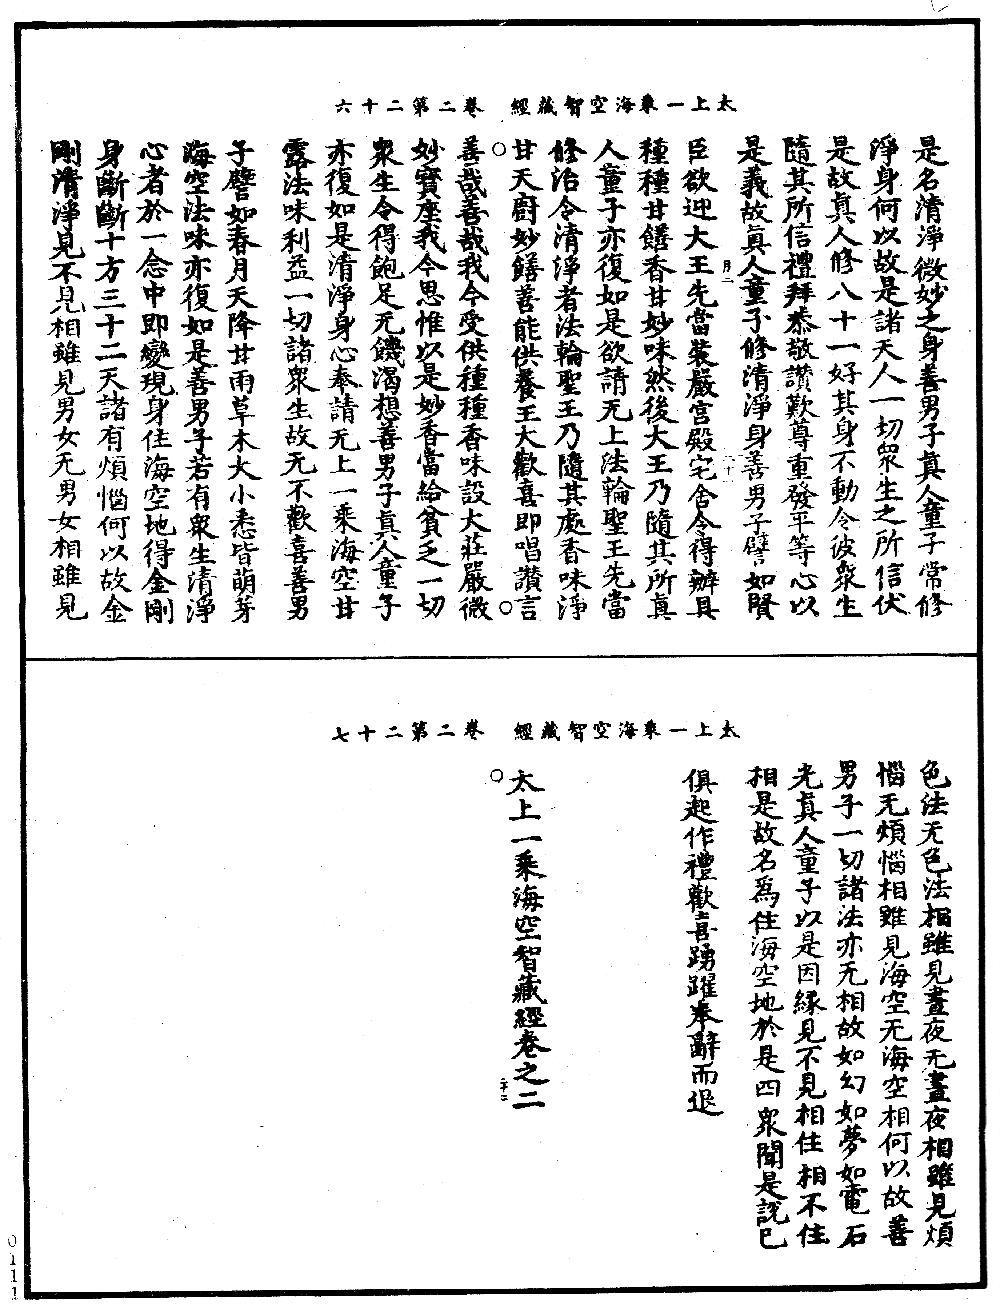 太上一乘海空智藏經　卷二第二十六
是名清淨微妙之身善男子真人童子常修
淨身何以故是諸天人一切衆生之所信伏
是故真人修八十一好其身不動令彼衆生
隨其所信禮拜恭敬讃歎尊重發平等心以
是義故真人童子修清淨身善男子譬如賢
臣欲迎大王先當裝嚴宮殿宅舍令得辦具
種種甘饍香甘妙味然後大王乃隨其所真
人童子亦復如是欲請无上法輪聖王先當
修治令清淨者法輪聖王乃隨其處香味淨
甘天廚妙饍善能供養王大歡喜即唱讃言
善哉善哉我今受供種種香味設大莊嚴微
妙寶座我今思惟以是妙香當給貧乏一切
衆生令得飽足无饑渴想善男子真人童子
亦復如是清淨身心奉請无上一乘海空甘
露法味利益一切諸衆生故无不歡喜善男
子譬如春月天降甘雨草木大小悉皆萌芽
海空法味亦復如是善男子若有衆生清淨
心者於一念中即變現身住海空地得金剛
身斷斷十方三十二天諸有煩惱何以故金
剛清淨見不見相雖見男女无男女相雖見
太上一乘海空智藏經　卷二第二十七
色法无色法相雖見晝夜无晝夜相雖見煩
惱无煩惱相雖見海空无海空相何以故善
男子一切諸法亦无相故如幻如夢如電石
光真人童子以是因緣見不見相住相不住
相是故名爲住海空地於是四衆聞是說已
俱起作禮歡喜踴躍奉辭而退
太上一乘海空智藏經卷之二
0111